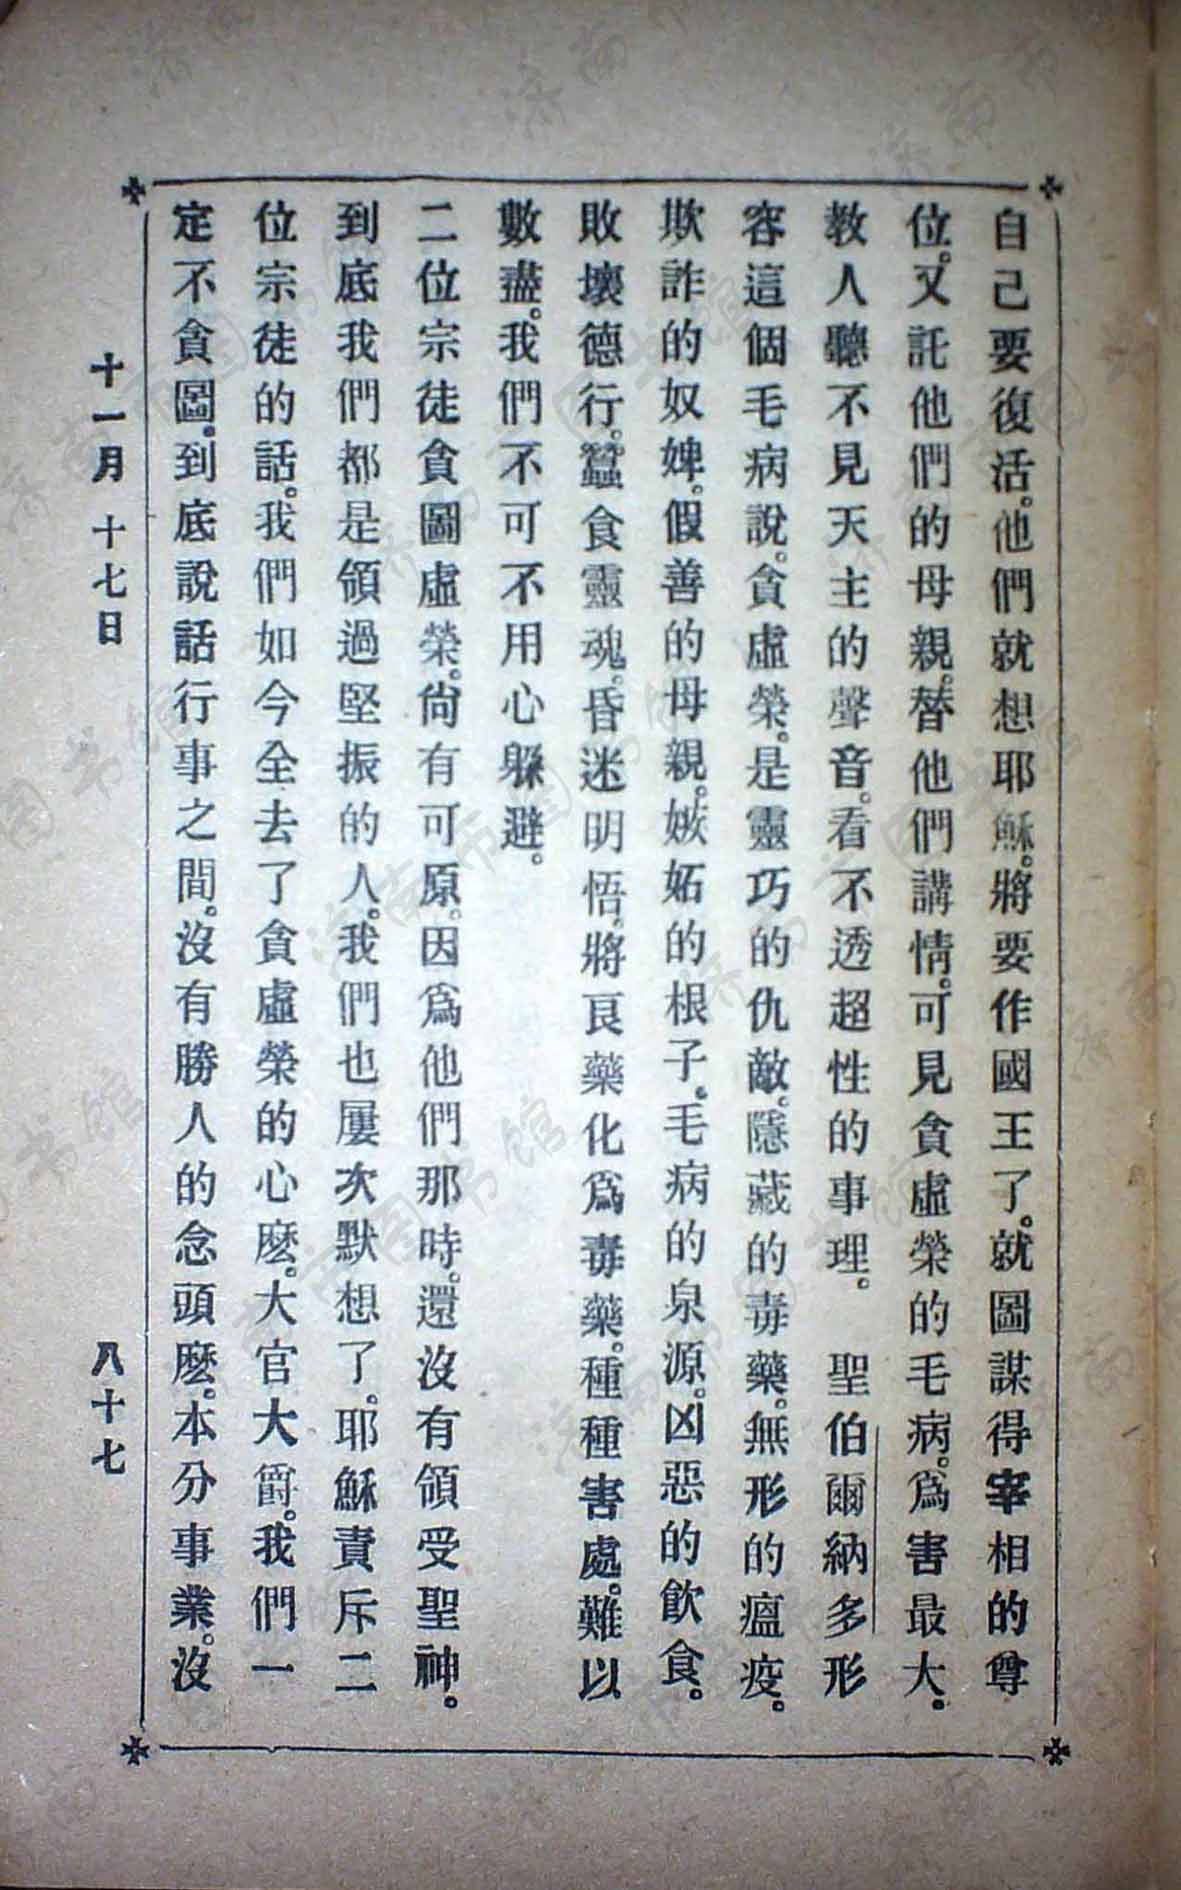 自己要復活。他們就想耶穌。將要作國王了。就圖謀得宰相的尊
位。又託他們的母親。替他們講情。可見貪虛榮的毛病。爲害最大。
教人聽不見天主的聲音。看不透超性的事理。 聖伯爾納多形
容這個毛病說。貪虛榮。是靈巧的仇敵。隱藏的毒藥。無形的瘟疫。
欺詐的奴婢。假善的母親。嫉妬的根子。毛病的泉源。凶惡的飲食。
敗壞德行。蠶食靈魂。昏迷明悟。將良藥化爲毒藥。種種害處。難以
數盡。我們不可不用心躲避。
二位宗徒貪圖虛榮。尙有可原。因爲他們那時。還沒有領受聖神。
到底我們都是領過堅振的人。我們也屢次默想了。耶穌責斥二
位宗徒的話。我們如今全去了貪虛榮的心麽。大官大爵。我們一
定不貪圖。到底說話行事之間。沒有勝人的念頭麽。本分事業。沒
十一月 十七日 八十七
济南市图书馆